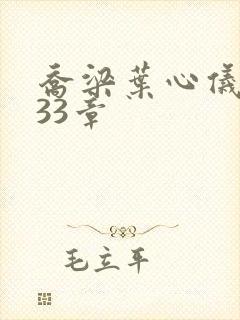 乔梁葉心儀
33章
毛立平